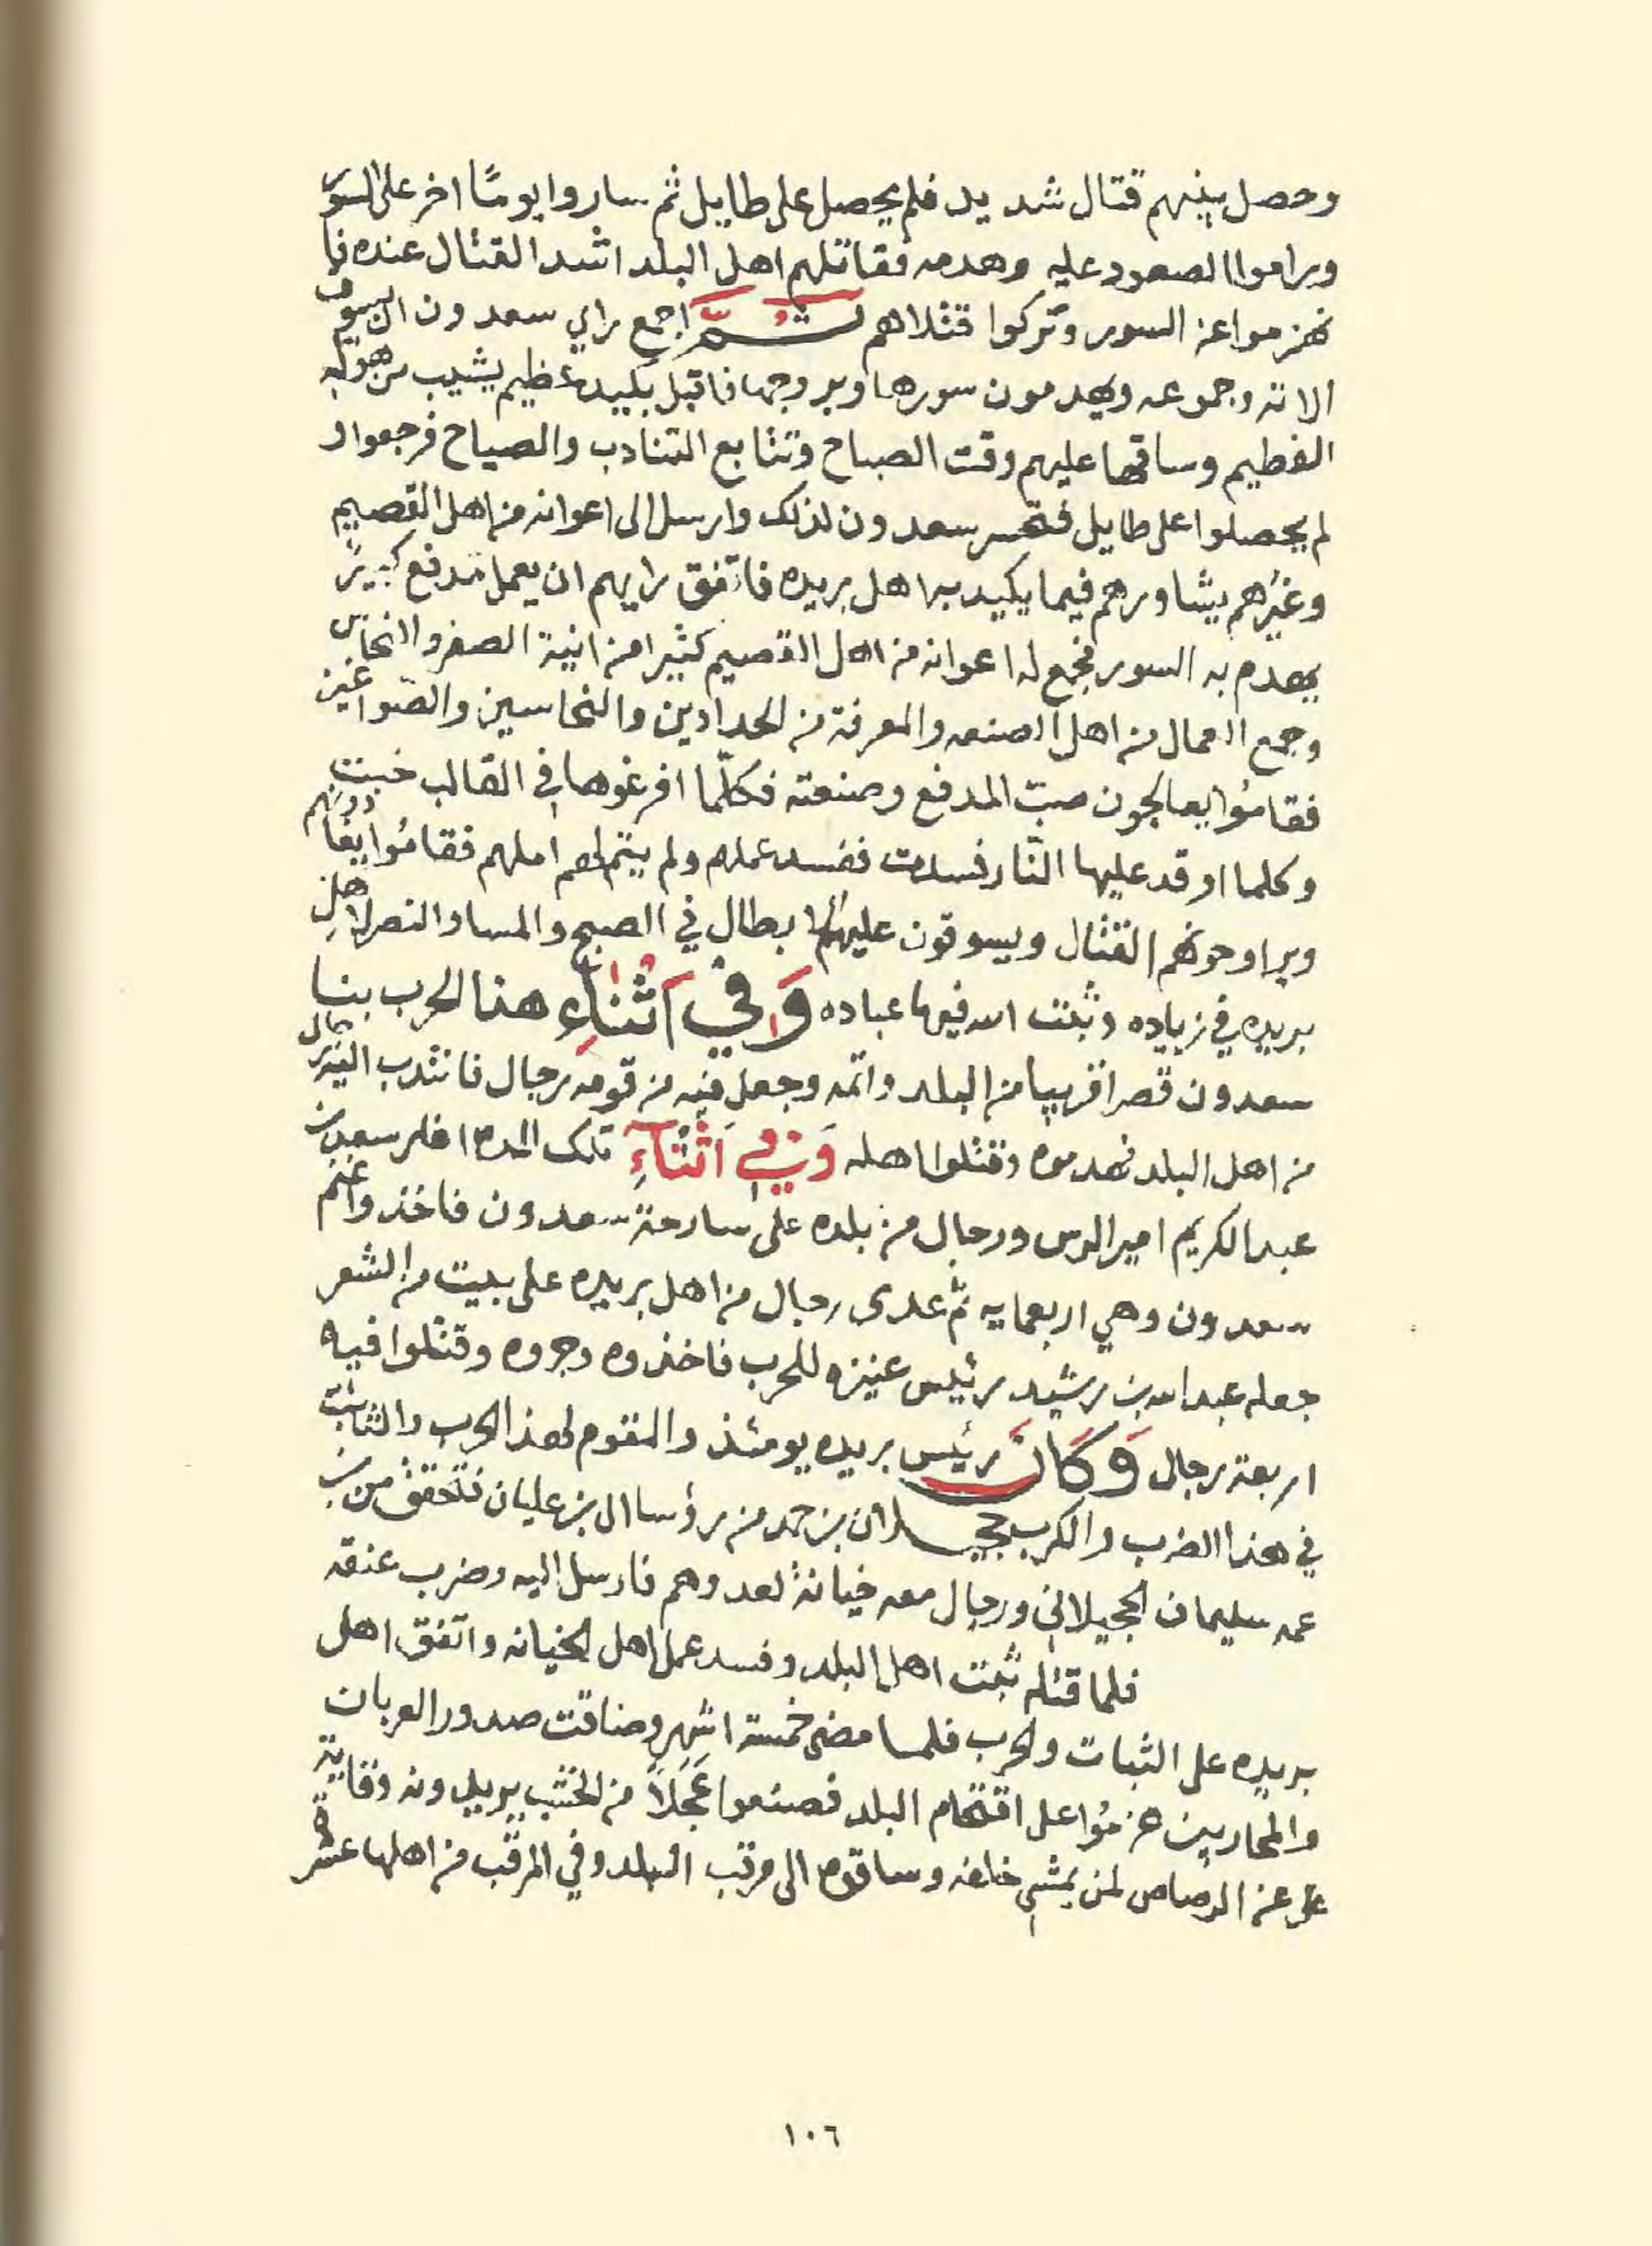 وحصل بينهم قتال شديد فلم يحصل على طايل ثم ساروا يومًا اخر على السور
وراموا الصعود عليه وهدمه فقاتلهم اهل البلد اشد القتال عنده فا
نهزموا عن السور وتركوا قتلاهم ثُمَّ اجمع راي سعدون ان يسوق
الاته وجموعه ويهدمون سورها وبروجها فاقبل بكيد عظيم يشيب من هوله
الفطيم وساقها عليهم وقت الصباح وتتابع التنادب والصياح فرجعوا و
لم يحصلوا على طايل فتحسر سعدون لذلك وارسل الى اعوانه من اهل القصيم
وغيرُهم يشاورهم فيما يكيد به اهل بريده فاتفق رايهم ان يعمل مدفع كبيرً
يهدم به السور فجمع له اعوانه من اهل القصيم كثيرا من انية الصفر والنحاس
وجمع العمال من اهل الصنعه والمعرفة من الحدادين والنحاسين والصّواغين
فقامُوا يعالجون صبّ المدفع وصنعته فكلّما افرغوها في القالب خبت
وكلما اوقد عليها النّار فسدت ففسد عملهم ولم يتم لهم املهم فقامُوا يغادونهم
ويراوحونهم القتال ويسوقون عليهم الابطال في الصبح والمسا والنصر لاهلِ
بريده في زياده وثبت الله فيها عباده وَفي اَثْنَاءِ هذا الحرب بنا
سعدون قصرا قريبا من البلد واتمه وجعل فيه من قومه رجال فانتدب اليه رجال
من اهل البلد فهدموه وقتلوا اهله وَفي اَثْنَآءِ تلك المده اغار سعد بن
عبدالكريم امير الرس ورجال من بلده على سارحة سعدون فاخذوا غنم
سعدون وهي اربعمايه ثم عدى رجال من اهل بريده على بيت من الشعر
جعله عبدالله بن رشيد رئيس عنيزه للحرب فاخذوه وجروه وقتلوا فيه
اربعة رجال وَكَانَ رئيس بريده يومئذ والمقوم لهذا الحرب والثابت
في هذا الضرب والكرب حجيلان بن حمد من رؤسا ال بن عليان فتحقق من بن
عمه سليمان الحجيلاني ورجال معه خيانة لعدوهم فارسل اليه وضرب عنقه
فلما قتله ثبت اهل البلد وفسد عمل اهل الخيانه واتفق اهل
بريده على الثبات والحرب فلما مضى خمسة اشهر وضاقت صدور العربان
والمحاربين عزمُوا على اقتحام البلد فصنعوا عَجَلاً من الخشب يريدونه وقاية
عن الرصاص لمن يمشي خلفه وساقوه الى مرقب البلد وفي المرقب من اهلها عشرة
١٠٦